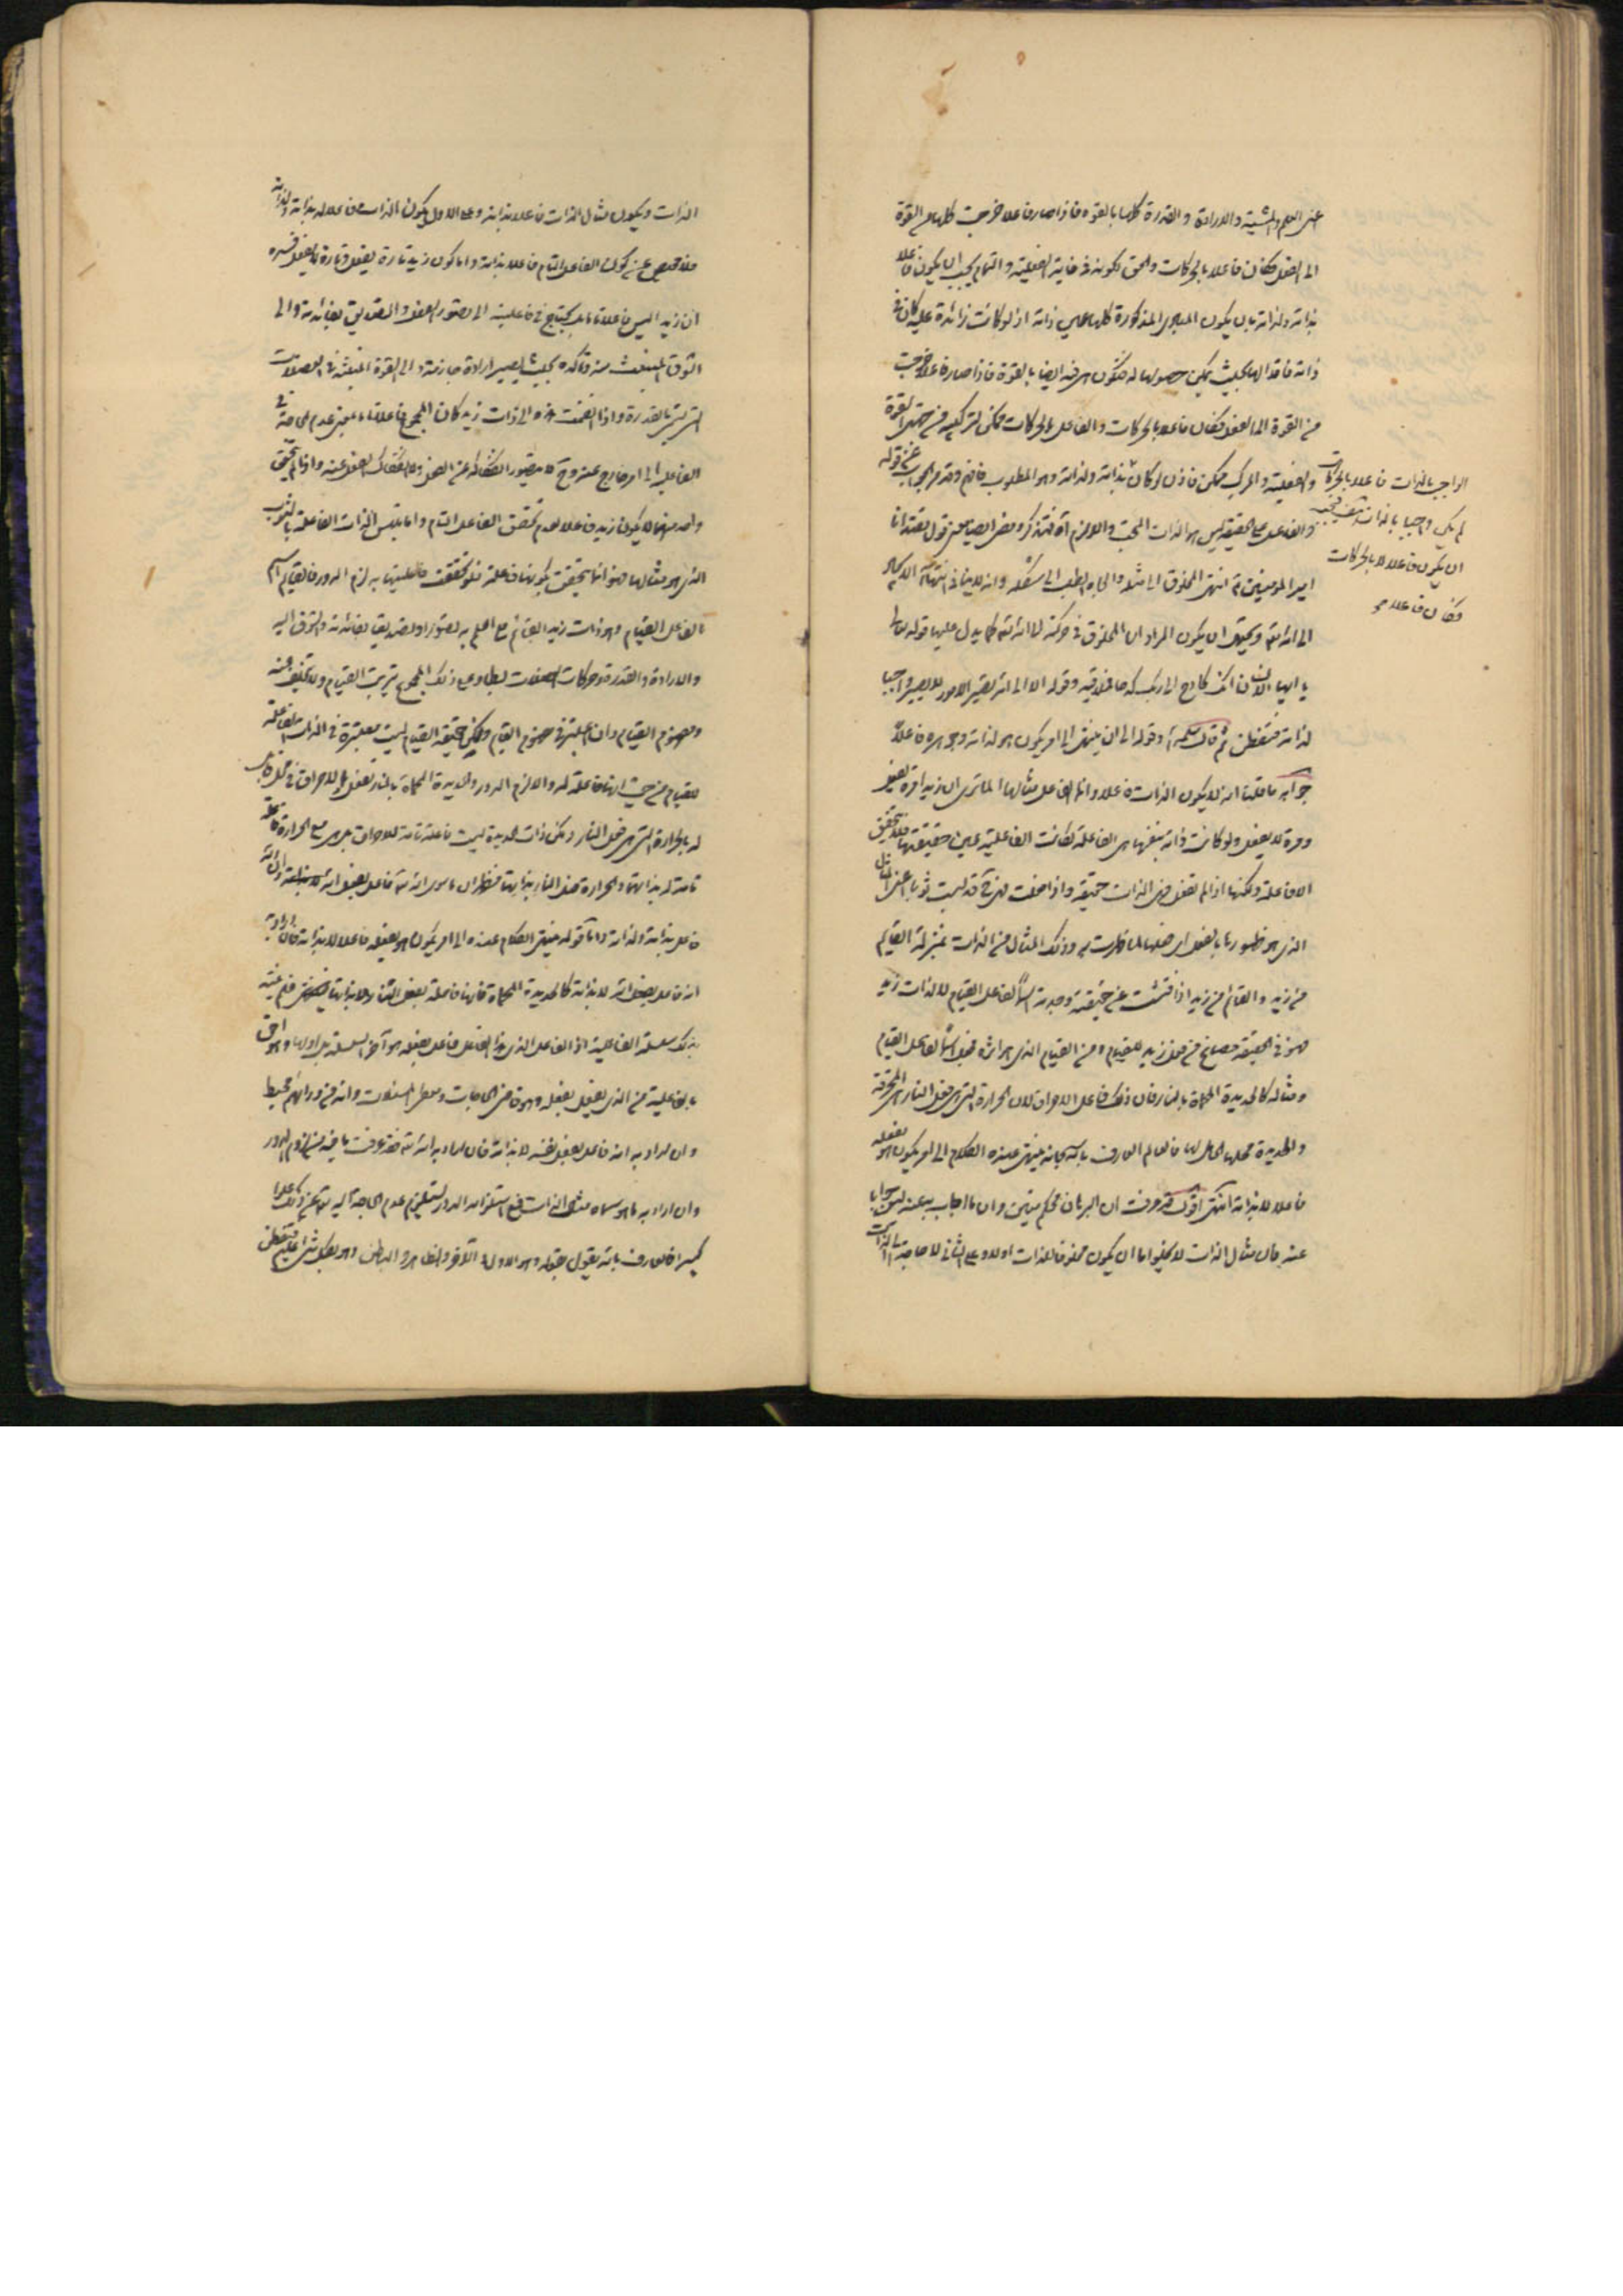 عن العلم والمشية والارادة والقدرة كلها بالقوة فاذا صار فاعلا خرجت كلها من القوة
الى الفعل فكان فاعلا بالحركات والحق لكونه في غاية الفعلية والتمام يجب ان يكون فاعلا
بذاته ولذاته بان يكون المبادى المذكورة كلها عين ذاته اذ لو كانت زائدة عليه كان في
ذاته فاقدا لها بحيث يمكن حصولها له فتكون هي فيه ايضا بالقوة فاذا صار فاعلا خرجت
من القوة الى الفعل فكان فاعلا بالحركات والفاعل بالحركات ممكن لتركبه من جهتى القوة
والفعلية والمركب ممكن فاذن لو كان بذاته ولذاته وهو المطلوب فافهم وقد مر الجواب عن قوله
والفاعل في الحقيقة ليس هو الذات البحت واللازم آه فتذكر وبعض ايضا معنى قول مقتدانا
امير المؤمنين انتهى المخلوق الى مثله والجاه الطلب الى شكله وانه لا ينافى انتهاء الكل
الى الله ويحتمل ان يكون المراد ان المخلوق في حركته الى الله كما يدل عليها قوله تعالى
يا ايها الانسان انك كادح الى ربك كدحا فملاقيه وقوله الا الى الله تصير الامور لا يصير واجبا
لذاته فتفطن ثم قال سلمه الله وقوله الى ان ينتهى الى امر يكون هو لذاته وجوهره فاعلا
جوابه ما قلنا انه لا يكون الذات فاعلا وانما الفاعل مثالها الا ترى ان زيدا مرة يفعل
ومرة لا يفعل ولو كانت ذاته بنفسها هى الفاعلة لكانت الفاعلية عين حقيقتها فلا تتحقق
الا فاعلة ولكنها اذا لم تفعل فهى الذات حقيقة واذا فعلت فهى ح قد لبست ثوبا اعنى المثال
الذى هو ظهورها بالفعل اى فعلها لما ظهرت به وذلك المثال من الذات بمنزلة القائم
من زيد والقائم من زيد اذا فتشت عن حقيقته وجدته اسما لفاعل القيام لا لذات زيد
فهو في الحقيقة مصاغ من فعل زيد للقيام ومن القيام الذى هو اثره فجعل اسما لفاعل القيام
ومثاله كالحديدة المحماة بالنار فان ذلك فاعل الاحراق لان الحرارة التى هى فعل النار هى المحرقة
والحديدة محلها الحامل لها فالعالم العارف بالله سبحانه ينتهى عنده الكلام الى امر يكون هو بفعله
فاعلا لا بذاته انتهى اقول قد عرفت ان البرهان محكم متين وان ما اجاب به عنه ليس جوابا
عنه فان مثال الذات لا يخلو اما ان يكون مخلوقا للذات اولا وعلى الثانى لا حاجة الى الذات
الواجب بالذات فاعلا بالحركات
لم يكن واجبا بالذات فيجب
ان يكون فاعلا لا بالحركات
وكان فاعلا
الذات ويكون مثال الذات فاعلا بذاته وعلى الاول يكون الذات فاعلا له بذاته ولذاته
فلا محيص عن كون الفاعل التام فاعلا بذاته واما كون زيد تارة يفعل وتارة لا يفعل فسره
ان زيدا ليس فاعلا تاما بل يحتاج في فاعليته الى تصور الفعل والتصديق بفائدته والى
الشوق المنبعث منه وتاكده بحيث يصير ارادة جازمة والى القوة المنبثة في العضلات
التى تسمى بالقدرة واذا انضمت هذه الى ذات زيد كان المجموع فاعلا تاما بمعنى عدم الحاجة في
الفاعلية الى امر خارج عنه وح لا يتصور انفكاكه عن الفعل ولا انفكاك الفعل عنه واذا لم يتحقق
واحد منها لا يكون زيد فاعلا لعدم تحقق الفاعل التام واما تلبس الذات الفاعلة بالثوب
الذى هو مثالها فهو انما يتحقق بكونها فاعلة فلو تحققت فاعليتها به لزم الدور فالقائم اسم
الفاعل القيام وهو ذات زيد القائم مع العلم به تصورا وتصديقا بفائدته والشوق اليه
والارادة والقدرة وحركات العضلات وعلى ذلك المجموع يترتب القيام ولا يتخلف عنه
ومفهوم القيام وان اعتبر في مفهوم القائم ولكن حقيقة القيام ليست معتبرة في الذات الفاعلة
للقيام من حيث انها فاعلة له والا لزم الدور والحديدة المحماة بالنار تفعل الاحراق في محل قابل
له بالحرارة التى هى فعل النار ولكن ذات الحديدة ليست فاعلة تامة للاحراق بل هى مع الحرارة فاعلة
تامة له بذاتها والحرارة فعل النار بذاتها فظهر ان ما سوى الله فاعل بفعل الله لا بذاته والله
فاعل بذاته ولذاته واما قوله فينتهى الكلام عنده الى امر يكون هو بفعله فاعلا لا بذاته فان اراد به
انه فاعل بفعل الله لا بذاته كالحديدة المحماة فانها فاعلة بفعل النار لا بذاتها فلم ينته
بذلك سلسلة الفاعلية اذ الفاعل الذى هذا الفاعل فاعل بفعله هو آخر السلسلة بل اولها وهو احق
بالفاعلية من الذى يفعل بفعله وهو قاضى الحاجات ومعطى المسئلات والله من ورائهم محيط
وان اراد به انه فاعل بفعل نفسه لا بذاته فان اراد به الله فقد عرفت ما فيه من لزوم الدور
وان اراد به ما هو سماه مثال الذات فمع استلزامه الدور يستلزم عدم الحاجة اليه تعالى عن ذلك علوا
كبيرا فالعارف بالله يقول بقوله وهو الاول والآخر والظاهر والباطن وهو بكل شئ عليم فتفطن